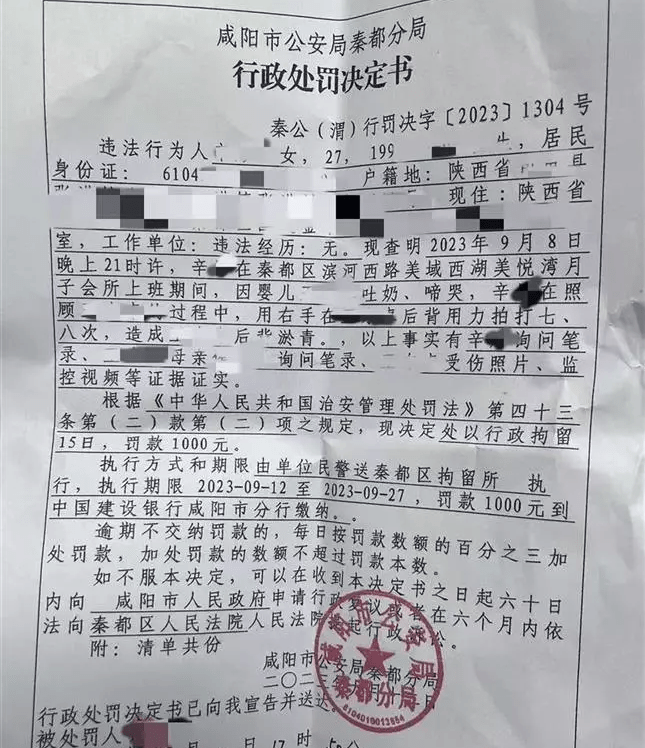 咸阳市公安局秦都分局
行政处罚决定书
秦公（渭）行罚决字〔2023〕1304 号
违法行为人 女，27，199 生，居民
身份证： 6104 户籍地：陕西省 县
现住：陕西省
室，工作单位：违法经历：无。现查明 2023 年 9 月 8 日
晚上 21 时许，辛 在秦都区滨河西路美域西湖美悦湾月
子会所上班期间，因婴儿 吐奶、啼哭，辛 在照
顾 过程中，用右手在 后背用力拍打七、
八次，造成 后背淤青。，以上事实有辛 询问笔
录、 母亲 询问笔录、 受伤照片、监
控视频等证据证实。
根据《中华人民共和国治安管理处罚法》第四十三
条第（二）款第（二）项之规定，现决定处以行政拘留
15日，罚款 1000元。
执行方式和期限由单位民警送秦都区拘留所 执
行，执行期限 2023-09-12 至 2023-09-27，罚款 1000元到
中国建设银行咸阳市分行缴纳。。
逾期不交纳罚款的，每日按罚款数额的百分之三加
处罚款，加处罚款的数额不超过罚款本数。
如不服本决定，可以在收到本决定书之日起六十日
内向 咸阳市人民政府申请行政复议或者在六个月内依
法向秦都区人民法院人民法院提起行政诉讼。
附：清单共份
咸阳市公安局秦都分局
二〇二三年 月十 日
咸阳市公安局
秦都分局
6104010012654
行政处罚决定书已向我宣告并送达。
被处罚人
月 日 17 时 50 分